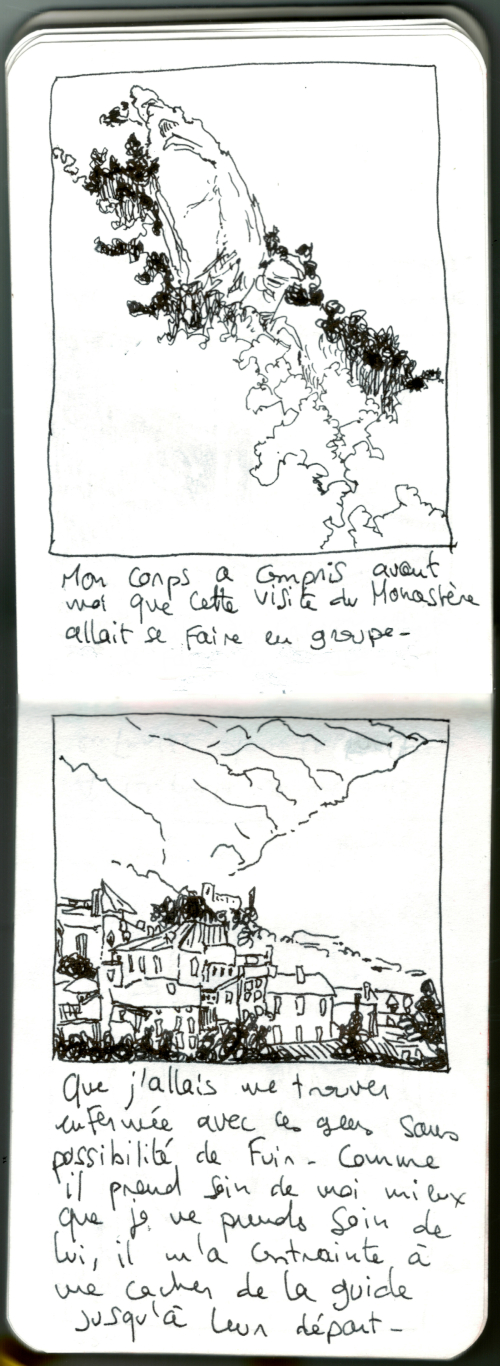 Mon corps a compris avant
moi que cette visite du Monastère
allait se faire en groupe-
Que j'allais me trouver
enfermée avec ces gens sans
possibilité de Fuir. Comme
il prend soin de moi mieux
que je ne prends soin de
lui, il m'a contrainte à
me cacher de la guide
jusqu'à leur départ-